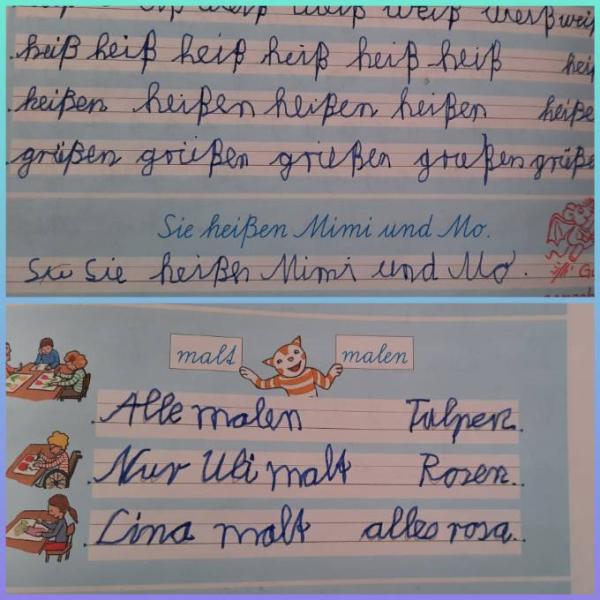 weiß weiß weiß weiß weiß
heiß heiß heiß heiß heiß heiß hei
heißen heißen heißen heißen heiße
grüßen grüßen grüßen grüßen grüße
Sie heißen Mimi und Mo.
Sie Sie heißen Mimi und Mo.
malt malen
Alle malen Tulpen.
Nur Uli malt Rosen.
Lina malt alles rosa.